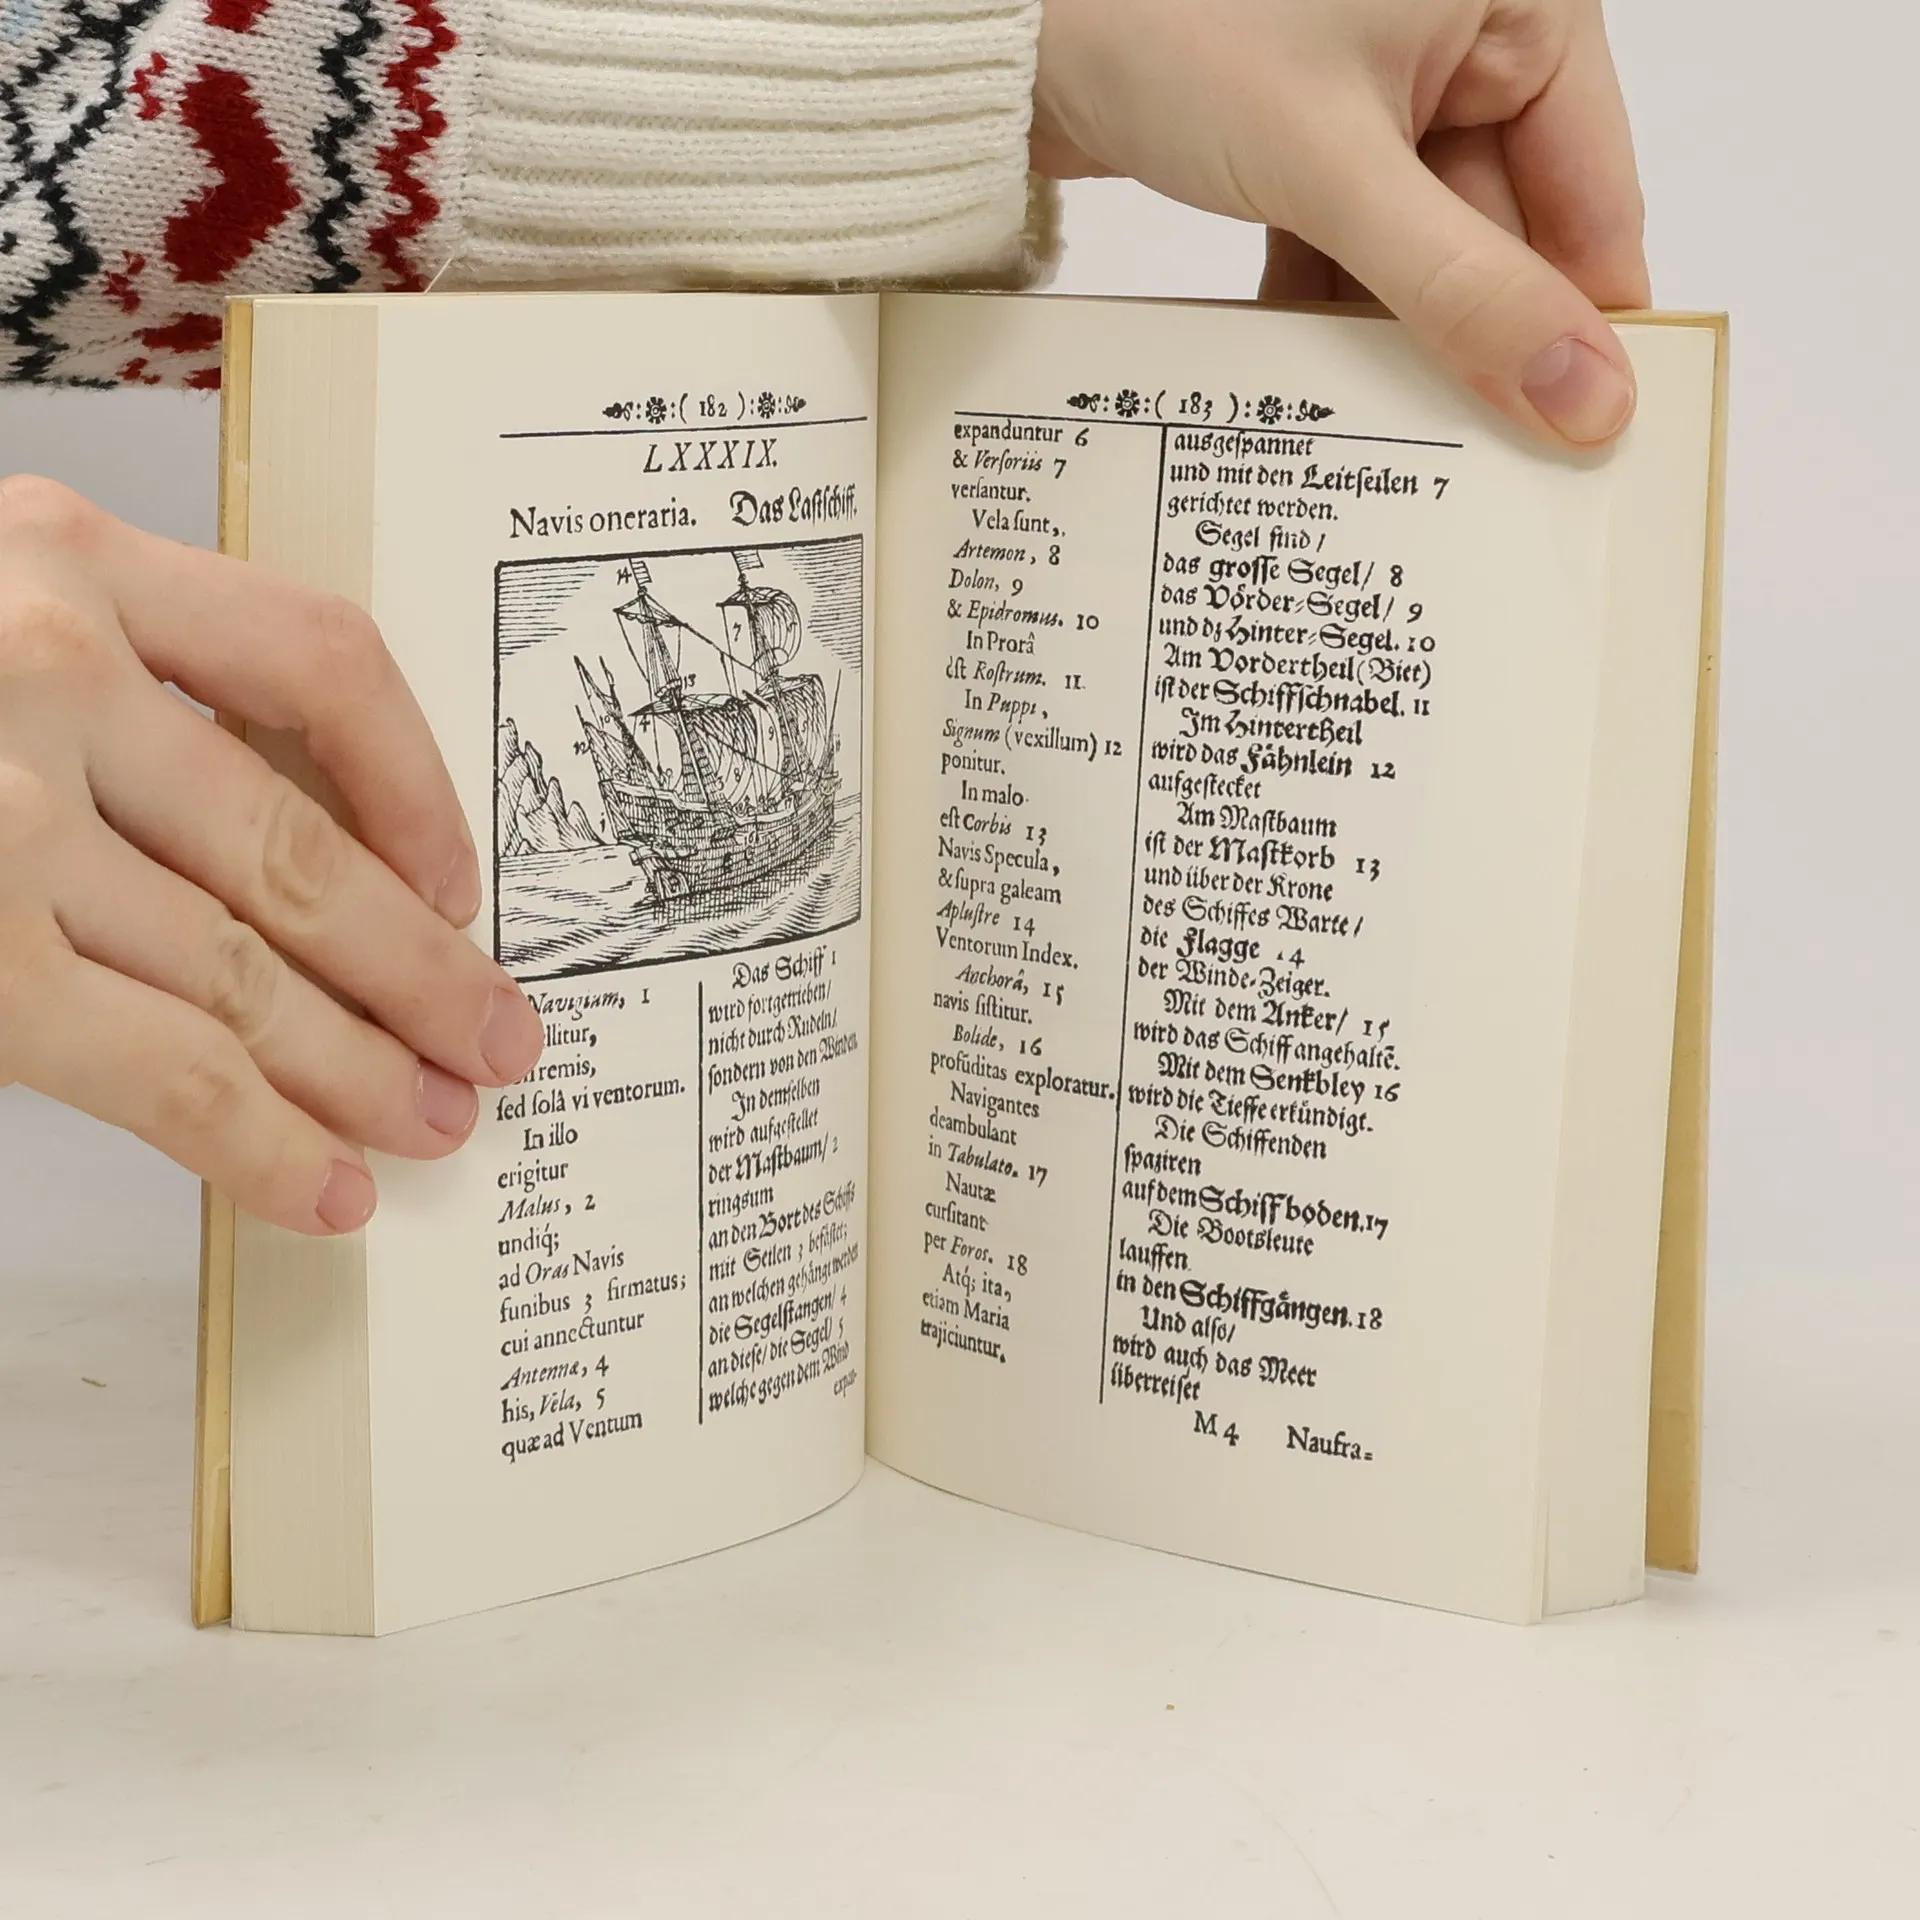 ( 182 )
LXXXIX.
Navis oneraria. Das Laſtſchiff.
Navigium, 1
ellitur,
remis,
ſed ſolâ vi ventorum.
In illo
erigitur
Malus, 2
undiq́;
ad Oras Navis
funibus 3 firmatus;
cui annectuntur
Antennæ, 4
his, Vela, 5
quæ ad Ventum
Das Schiff 1
wird fortgetrieben/
nicht durch Rudeln/
ſondern von den Winden.
In demſelben
wird aufgeſtellet
der Maſtbaum/ 2
ringsum
an den Bort des Schiffs
mit Seilen 3 befäſtet;
an welchen gehängt werden
die Segelſtangen/ 4
an dieſe/ die Segel/ 5
welche gegen dem Wind
expan-
( 183 )
expanduntur 6
& Verſoriis 7
verſantur.
Vela ſunt,
Artemon, 8
Dolon, 9
& Epidromus. 10
In Prorâ
eſt Roſtrum. 11
In Puppi,
Signum (vexillum) 12
ponitur.
In malo
eſt Corbis 13
Navis Specula,
& ſupra galeam
Apluſtre 14
Ventorum Index.
Anchorâ, 15
navis ſiſtitur.
Bolide, 16
profūditas exploratur.
Navigantes
deambulant
in Tabulato. 17
Nautæ
curſitant
per Foros. 18
Atq́; ita,
etiam Maria
trajiciuntur.
ausgeſpannet
und mit den Leitſeilen 7
gerichtet werden.
Segel ſind /
das groſſe Segel/ 8
das Vörder-Segel/ 9
und dz Hinter-Segel. 10
Am Vordertheil (Biet)
iſt der Schiffſchnabel. 11
Im Hintertheil
wird das Fähnlein 12
aufgeſtecket
Am Maſtbaum
iſt der Maſtkorb 13
und über der Krone
des Schiffes Warte /
die Flagge 14
der Winde-Zeiger.
Mit dem Anker/ 15
wird das Schiff angehaltē.
Mit dem Senkbley 16
wird die Tieffe erkündigt.
Die Schiffenden
ſpaziren
auf dem Schiffboden. 17
Die Bootsleute
lauffen
in den Schiffgängen. 18
Und alſo/
wird auch das Meer
überreiſet
M 4 Naufra-